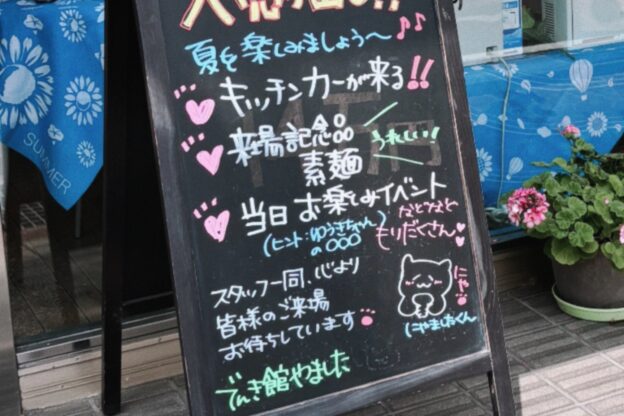 夏を楽しみましょう〜♪♪
キッチンカーが来る!!
来場記念品
うれしい!!
素麺
当日お楽しみイベント
(ヒント:ゆうきちゃんの○○○)
などなど
もりだくさん♥
スタッフ一同、心より
皆様のご来場
お待ちしています
にゃー
にゃましたくん
でんき館やました
SUMMER